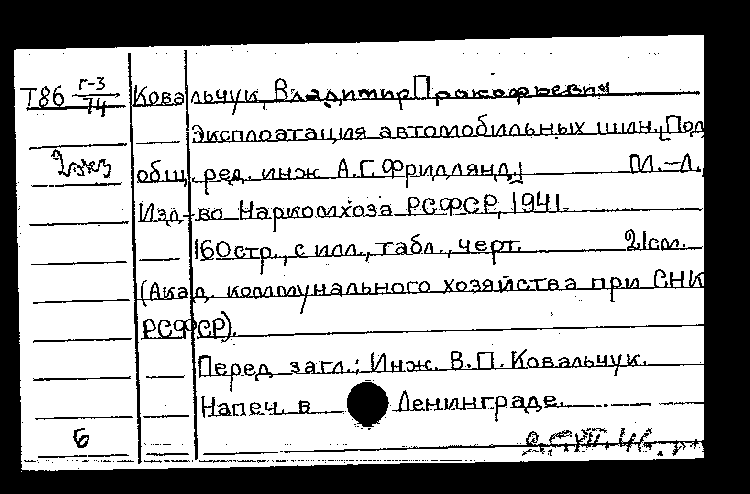 Т86 г-3/74 Ковальчук, Владимир Прокофьевич
Эксплоатация автомобильных шин. [Под
2экз общ. ред. инж А.Г. Фридлянд.] М.-Л.,
Изд-во Наркомхоза РСФСР, 1941.
160стр., с илл., табл., черт. 21см.
(Акад. коммунального хозяйства при СНК
РСФСР).
Перед загл.: Инж. В.П. Ковальчук.
Напеч. в Ленинграде.
Б